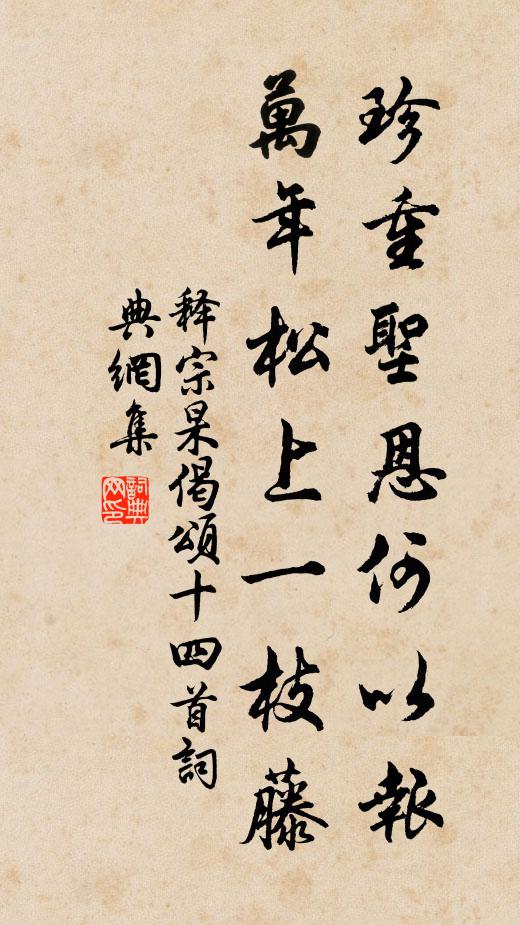 珍重聖恩何以報
萬年松上一枝藤
释宗杲偈頌十四首詞
典網集
詞典网印